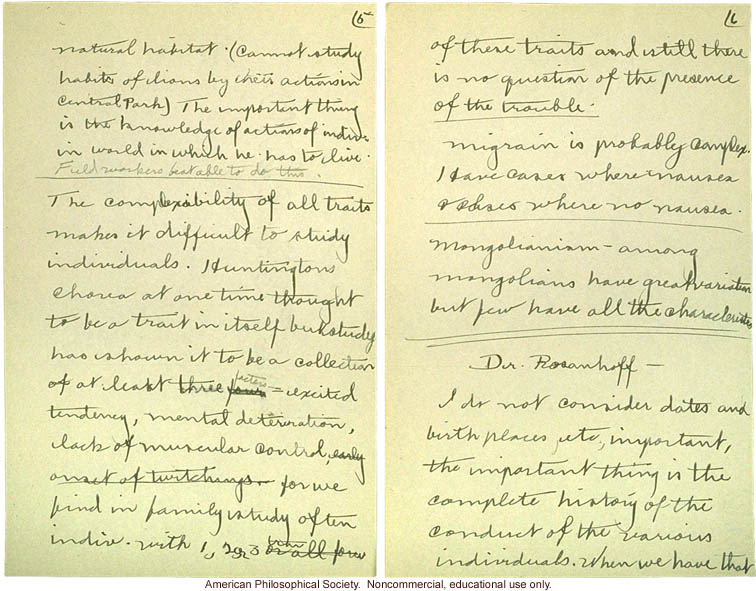 15
natural habitat. (Cannot study
habits of lions by their actions in
Central Park) The important thing
is the knowledge of actions of indivs
in world in which he has to live.
Field workers best able to do this.
The complexibility of all traits
makes it difficult to study
individuals. Huntingtons
chorea at one time thought
to be a trait in itself but study
has shown it to be a collection
of at least three four factors - excited
tendency, mental deterioration,
lack of muscular control, early
onset of twitchings - for we
find in family study often
indiv. with 1, 2 or 3 or all four
16
of these traits and still there
is no question of the presence
of the trouble.
migrain is probably complex.
Have cases where nausea
& cases where no nausea.
Mongolianism - among
mongolians have great variation
but few have all the characteristics
Dr. Rosanhoff -
I do not consider dates and
birth places, etc, important,
the important thing is the
complete history of the
conduct of the various
individuals. When we have that
American Philosophical Society. Noncommercial, educational use only.